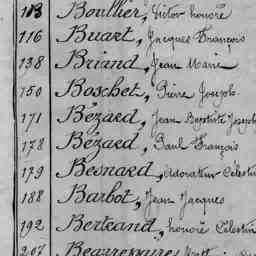 113 Boullier, Victor honoré
116 Buart, Jacques François
138 Briand, Jean Marie
150 Boschet, Pierre Joseph
171 Bézard, Jean Baptiste Joseph
178 Bézard, Paul François
179 Besnard, Adorateur Célestin
188 Barbot, Jean Jacques
192 Bertrand, honoré Célestin
207